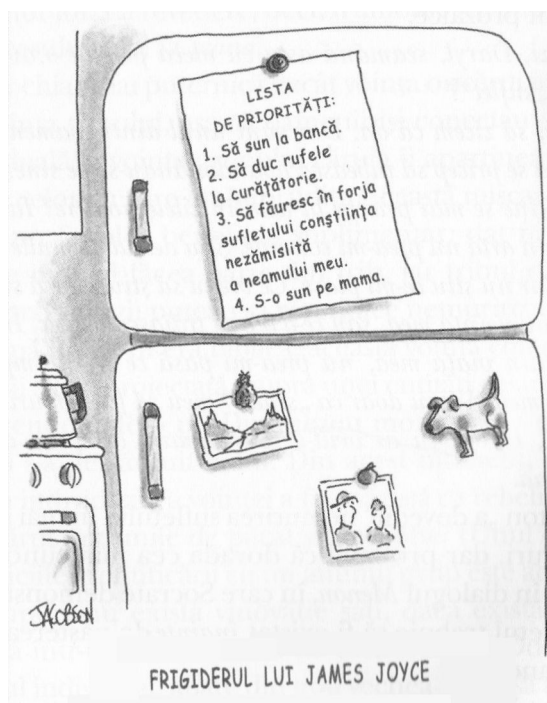 LISTA
DE PRIORITĂȚI:
1. Să sun la bancă.
2. Să duc rufele
la curățătorie.
3. Să făuresc în forja
sufletului conștiința
nezămislită
a neamului meu.
4. S-o sun pe mama.
JACOBSON
FRIGIDERUL LUI JAMES JOYCE